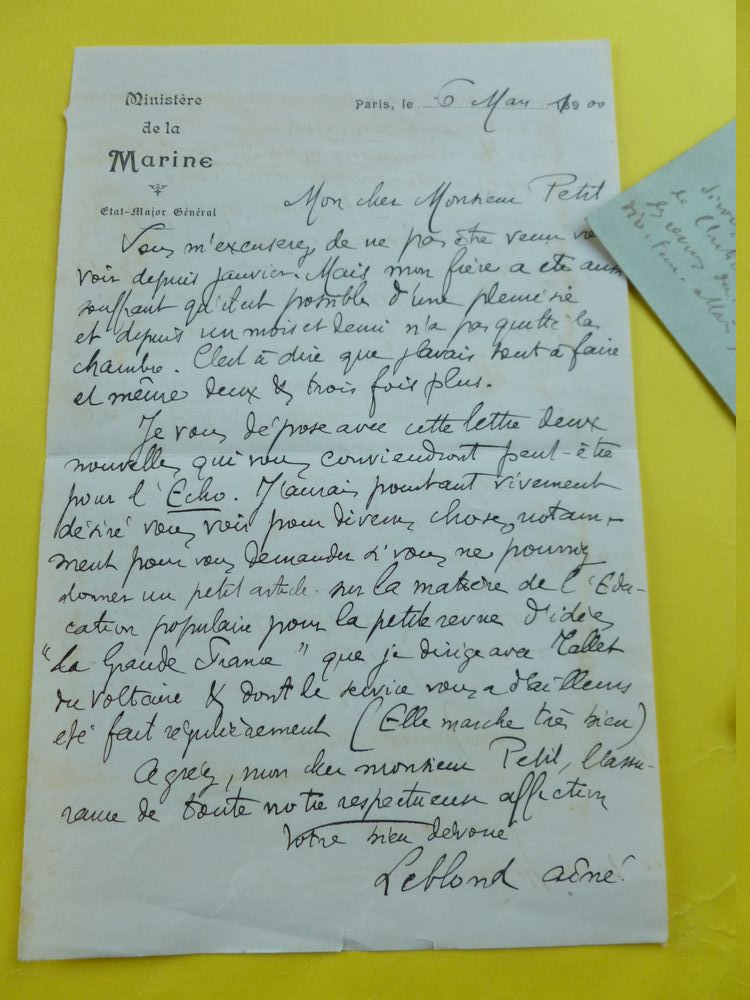 Ministère
de la
Marine
Etat-Major Général
Paris, le 6 Mars 1900
Mon cher Monsieur Petit
Vous m'excuserez de ne pas être venu
voir depuis janvier. Mais mon frère a été aussi
souffrant qu'il est possible d'une pleurésie
et depuis un mois et demi n'a pas quitté la
chambre. C'est à dire que j'avais tout à faire
et même deux & trois fois plus.
Je vous dépose avec cette lettre deux
nouvelles qui vous conviendront peut-être
pour l'Echo. J'aurais pourtant vivement
désiré vous voir pour diverses choses, notam-
ment pour vous demander si vous ne pourriez
donner un petit article sur la matière de l'Edu-
cation populaire pour la petite revue d'idées
"La Grande France" que je dirige avec Tallet
du Voltaire & dont le service vous a d'ailleurs
été fait régulièrement (Elle marche très bien)
Agréez, mon cher monsieur Petit, l'assu-
rance de toute notre respectueuse affection
Votre bien dévoué
Leblond aîné.